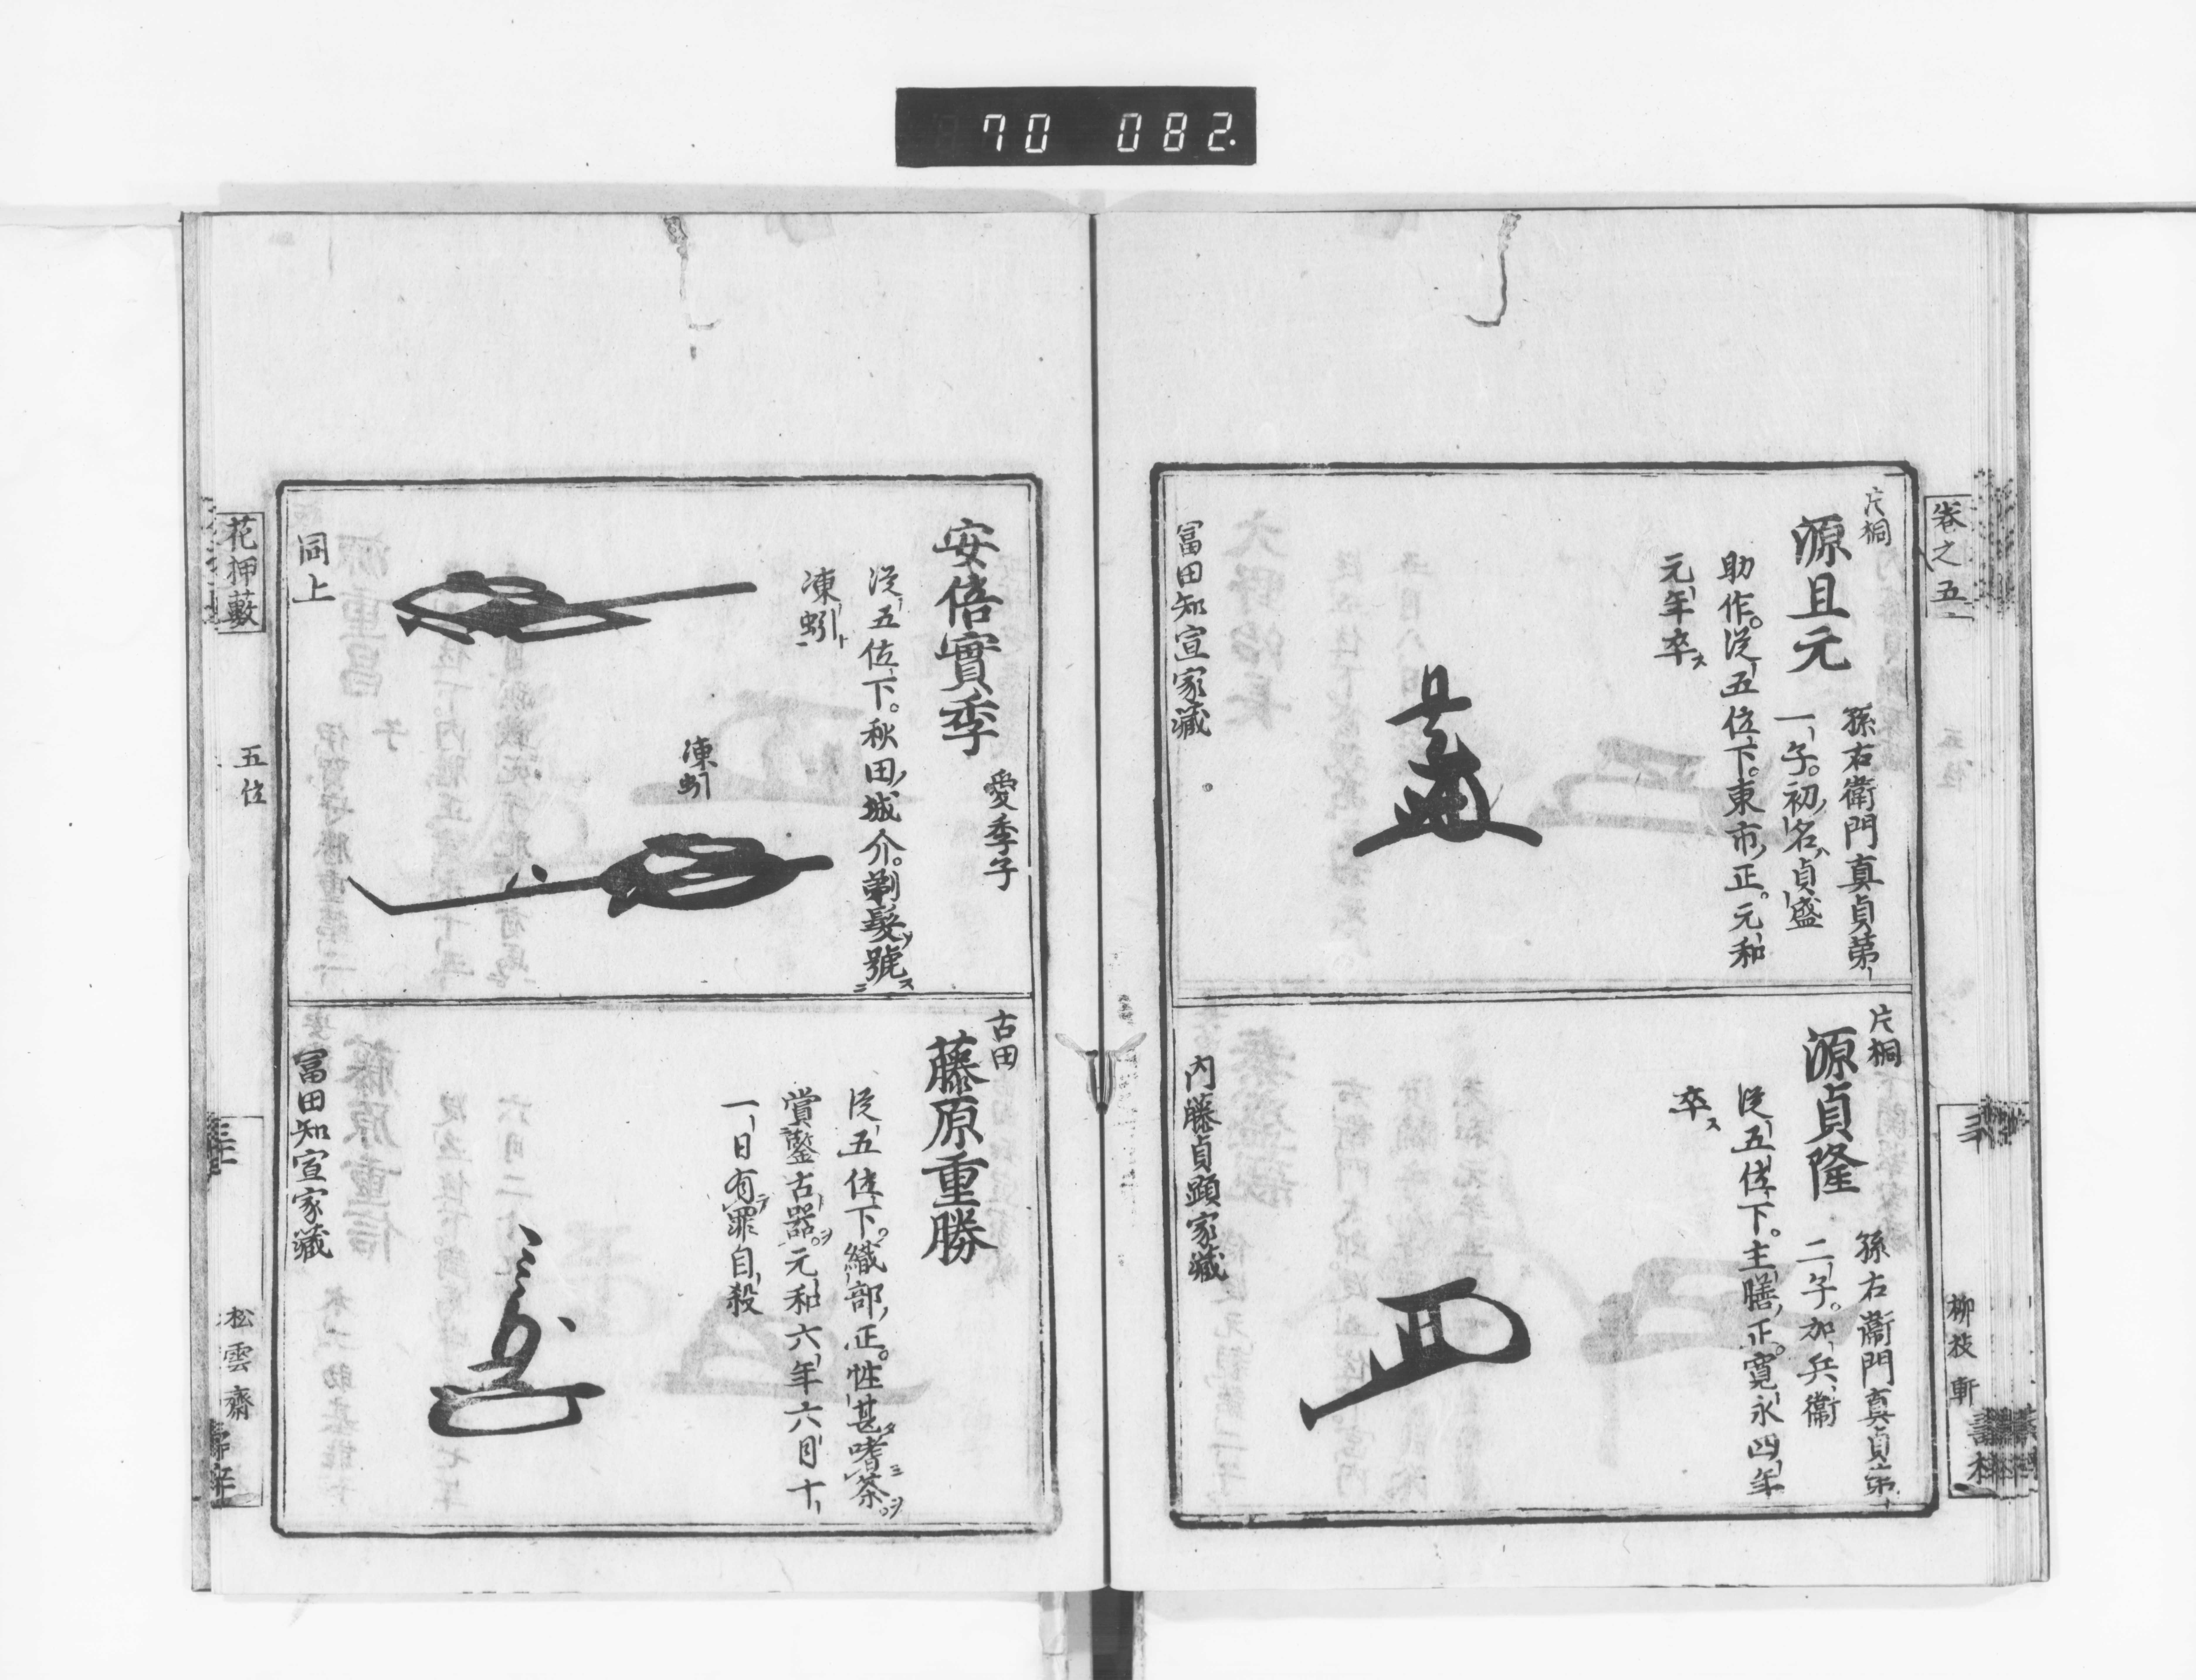 70 082.
卷之五
柳枝軒
片桐
源且元
孫右衛門真貞第
一子。初名貞盛
助作。從五位下。東市正。元和
元年卒ス
冨田知宣家藏
片桐
源貞隆
孫右衞門真貞第
二子。加兵衞
從五位下。主膳正。寛永四年
卒ス
内藤貞顕家藏
安倍實季
愛季子
從五位下。秋田城介。剃髮號
凍蚓
凍蚓
同上
古田
藤原重勝
從五位下。織部正。性甚嗜茶
賞鑒古器。元和六年六月十
一日有罪自殺
冨田知宣家藏
花押藪
五位
松雲齋